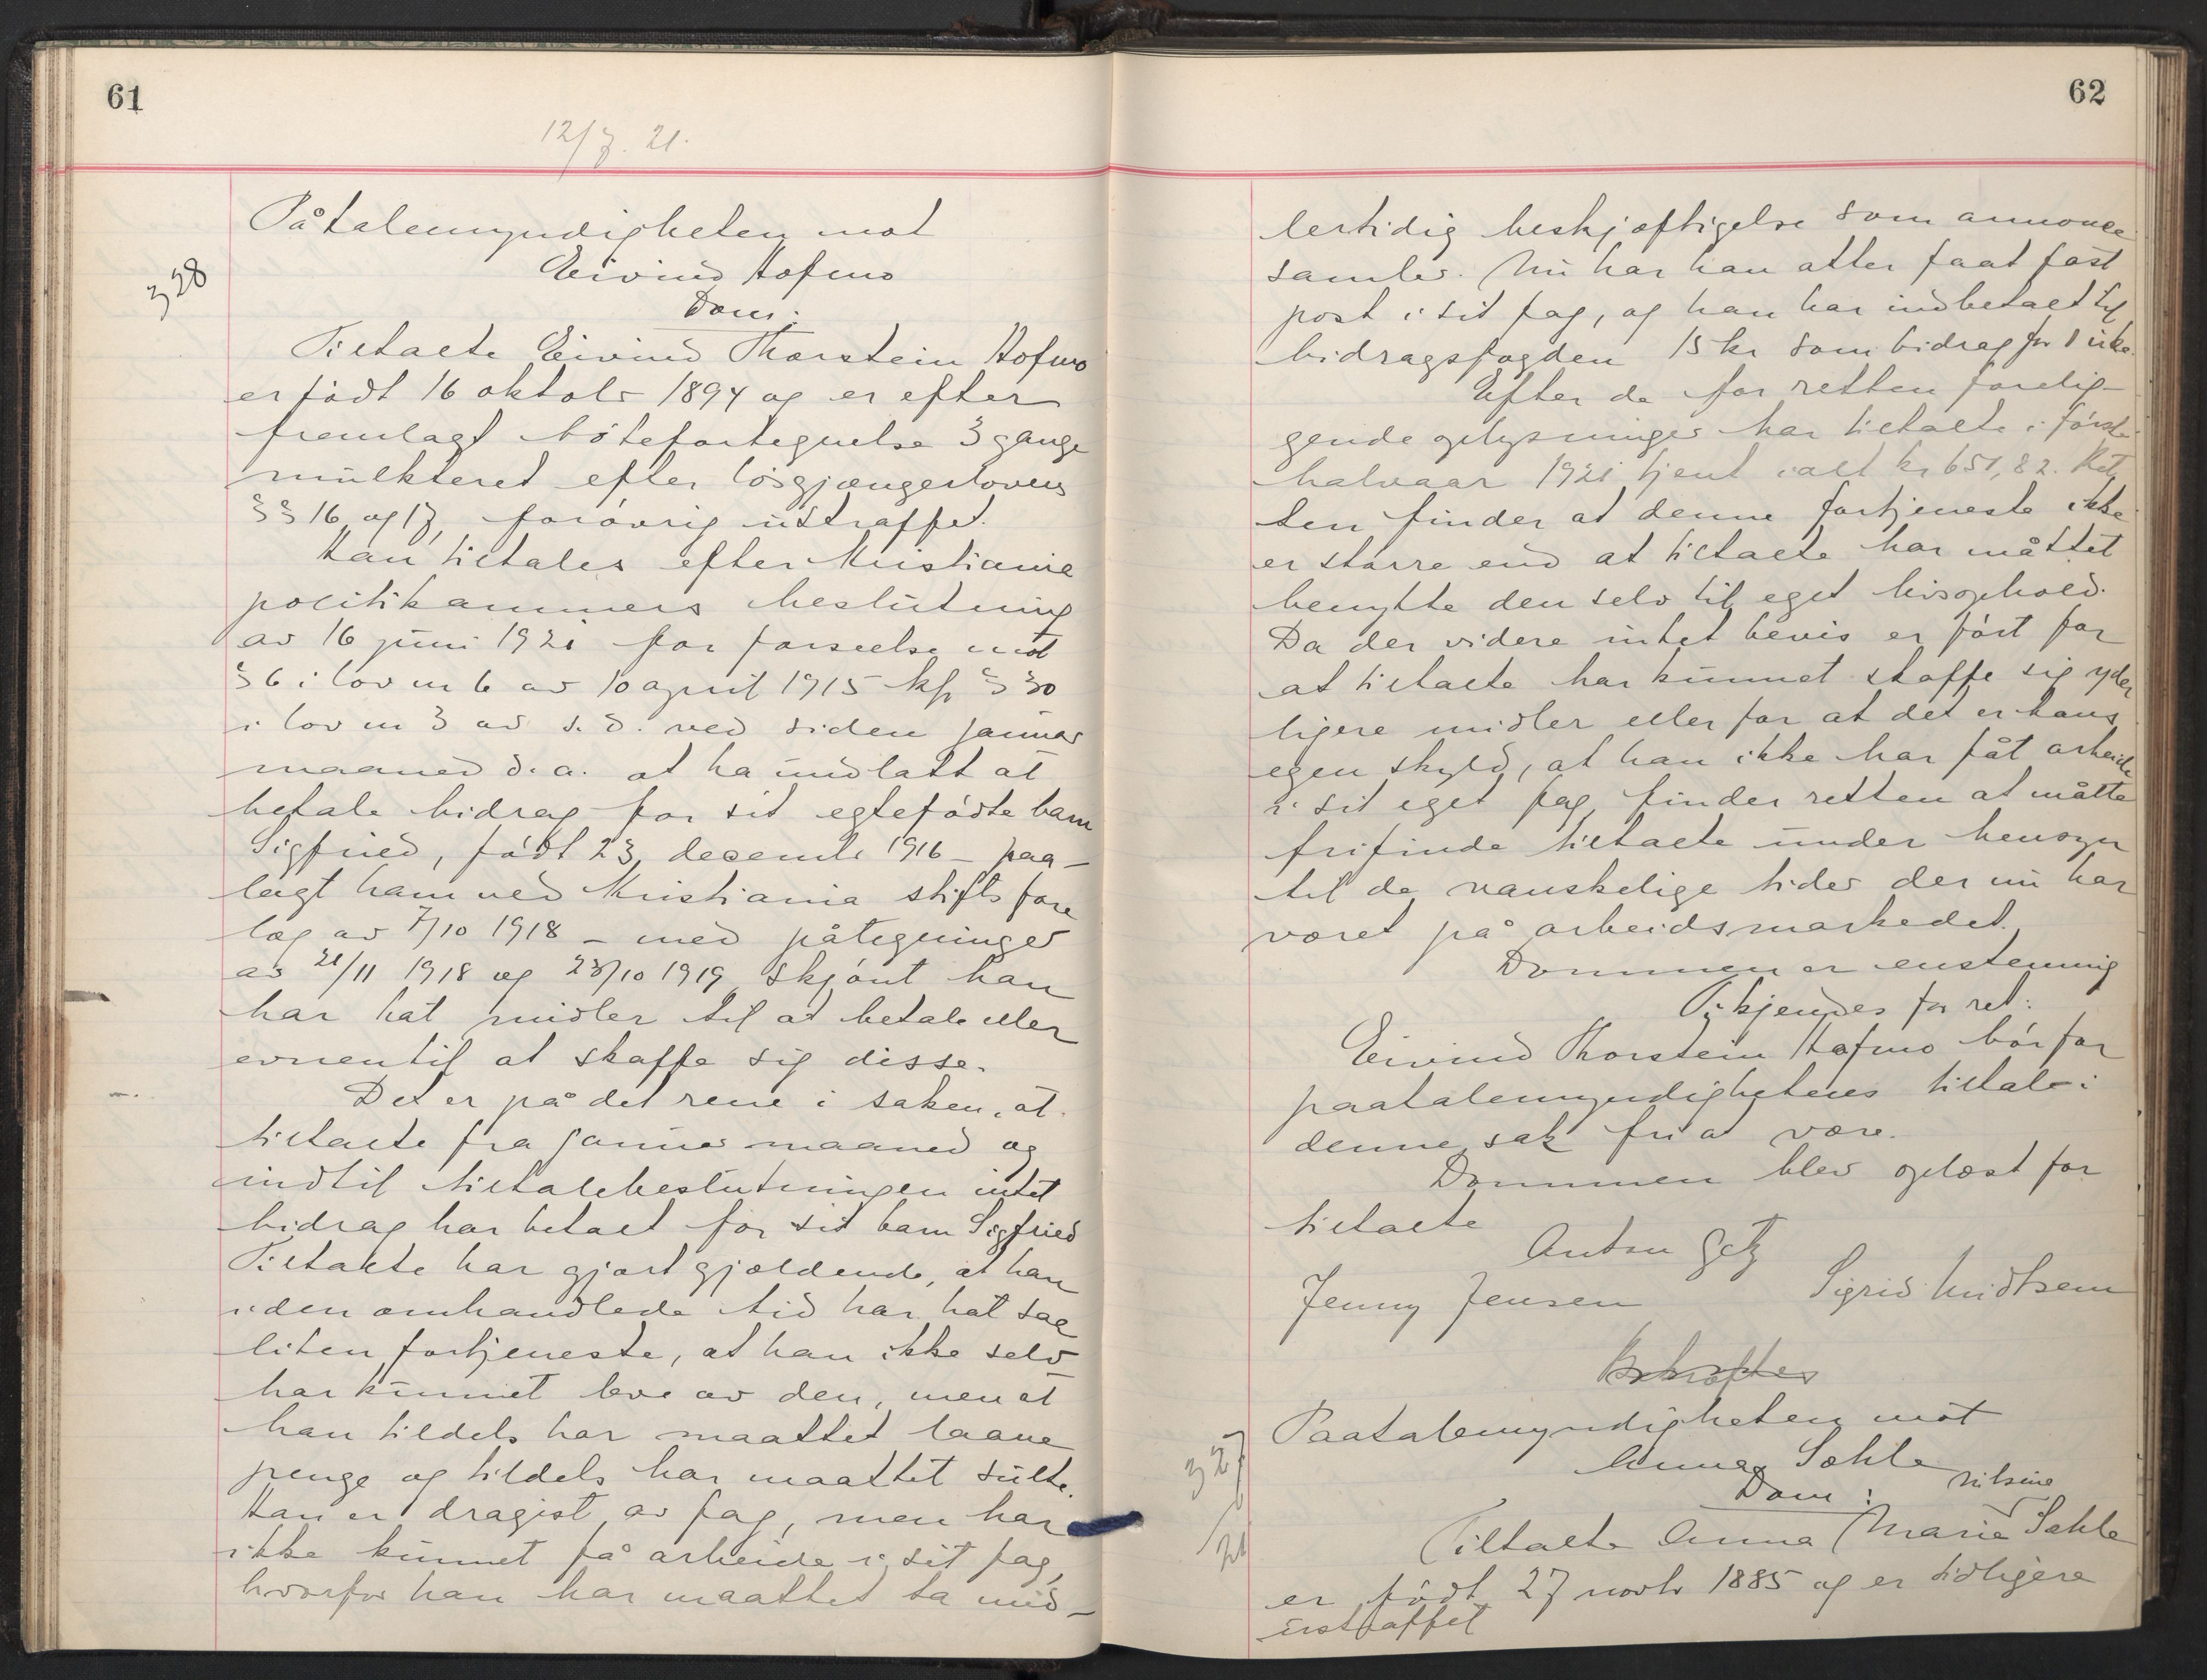 61
12/7. 21.
328
Påtalemyndigheten mot
Eivind Hofmo
Dom:
Tiltalte Eivind Thorstein Hofmo
er född 16 oktobr 1894 og er efter
fremlagt bötefortegnelse 3 gange
mulkteret efter lösgjængerlovens
§§ 16 og 17, forövrig ustraffet.
Han tiltales efter Kristiania
politikammers beslutning
av 16 juni 1921 for forseelse mot
§ 6 i lov nr 6 av 10 april 1915 kfr § 30
i lov nr 3 av s. d. ved siden januar
maaned d. a. at ha undlatt at
betale bidrag for sit egtefödte barn
Sigfried, födt 23 decembr 1916 – paa-
lagt ham ved Kristiania stifts fore
læg av 7/10 1918 – med påtegninger
av 21/11 1918 og 23/10 1919, skjönt han
har hat midler til at betale eller
evnen til at skaffe sig disse.
Det er på det rene i saken, at
tiltalte fra januar maaned og
indtil tiltalebeslutningen intet
bidrag har betalt for sit barn Sigfried
Tiltalte har gjort gjældende, at han
i den omhandlede tid har hat saa
liten fortjeneste, at han ikke selv
har kunnet leve av den, men at
han tildels har maattet laane
penge og tildels har maattet sulte.
Han er dragist av fag, men har
ikke kunnet få arbeide i sit fag,
hvorfor han har maattet ta mid-
62
lertidig beskjæftigelse som annonce
samler. Nu har han atter faat fast
post i sit fag, og han har indbetalt til
bidragsfogden 15 kr som bidrag for 1 uke.
Efter de for retten forelig-
gende oplysninger har tiltalte i förste
halvaar 1921 tjent ialt kr 651,82. Ret-
ten finder at denne fortjeneste ikke
er större end at tiltalte har måttet
benytte den selv til eget livsophold.
Da der videre intet bevis er fört for
at tiltalte har kunnet skaffe sig yder
ligere midler eller for at det er hans
egen skyld, at han ikke har fåt arbeide
i sit eget fag, finder retten at måtte
frifinde tiltalte under hensyn
til de vanskelige tider der nu har
været på arbeidsmarkedet.
Dommen er enstemmig
Ti kjendes for ret:
Eivind Thorstein Hofmo bör for
paatalemyndighetens tiltale i
denne sak fri at være.
Dommen blev oplæst for
tiltalte
Anton Getz
Jenny Jensen Sigrid
Bekræftes
327
Paatalemyndigheten mot
Anna Sahle
Dom:
Nilsine
Tiltalte Anna Marie Sahle
er födt 27 novbr 1885 og er tidligere
ustraffet